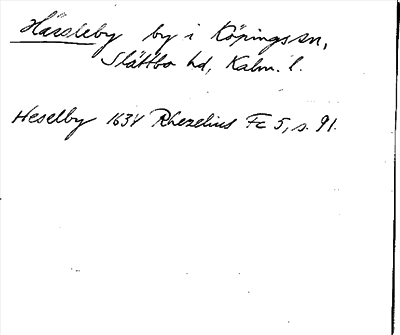 Hässleby by i Köpings sn,
Slättbo hd, Kalm. l.
Heselby 1634 Rhezelius Fc 5, s. 91.